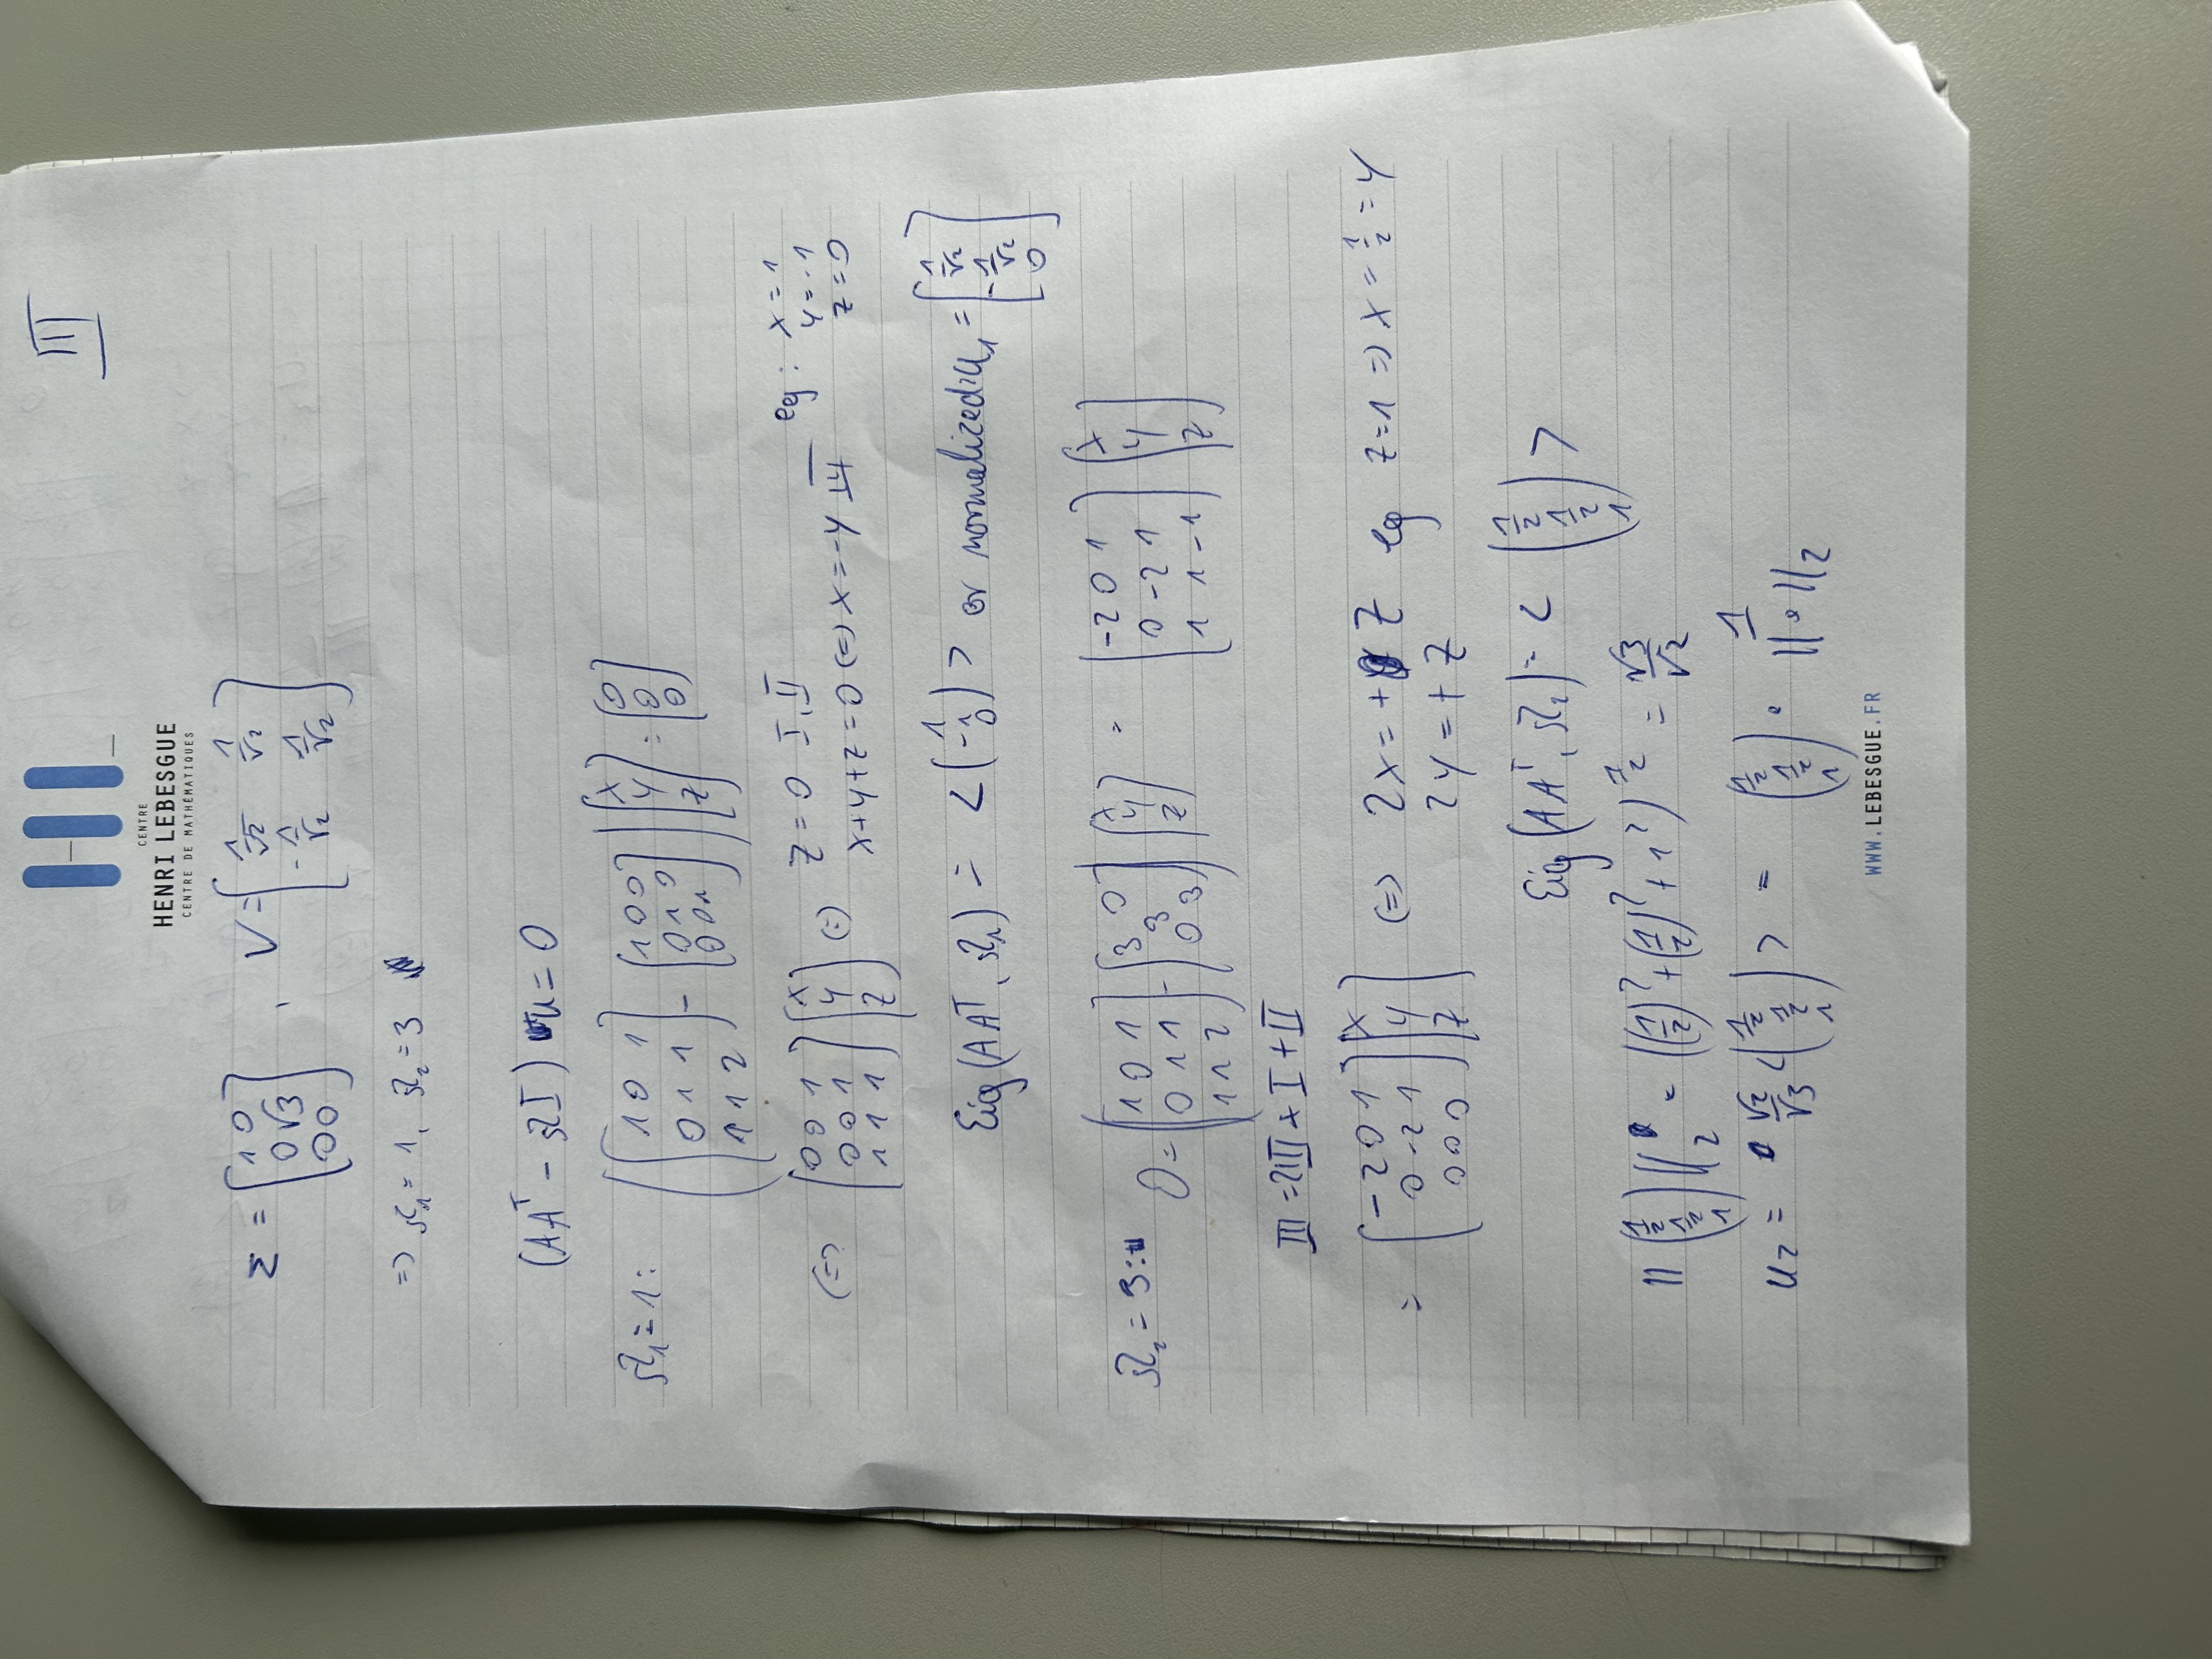 III
CENTRE
HENRI LEBESGUE
CENTRE DE MATHÉMATIQUES
Σ = [1 0; 0 √3; 0 0] , V = [1/√2 1/√2; -1/√2 1/√2]
=> λ₁ = 1, λ₂ = 3
(AAᵀ - λI) u = 0
λ₁ = 1: ([1 0 1; 0 1 1; 1 1 2] - [1 0 0; 0 1 0; 0 0 1]) [x; y; z] = [0; 0; 0]
(=> [0 0 1; 0 0 1; 1 1 1] [x; y; z] (=) z = 0 I, II
x+y+z = 0 (=) x = -y III
eg: x = 1
y = -1
z = 0
Eig(AAᵀ, λ₁) = < (1; -1; 0) > or normalized: u₁ = [1/√2; -1/√2; 0]
λ₂ = 3: 0 = ([1 0 1; 0 1 1; 1 1 2] - [3 0; 3; 0 3]) [x; y; z] = [-2 0 1; 0 -2 1; 1 1 -1] [x; y; z]
III = 2III + I + II
= [-2 0 1; 0 -2 1; 0 0 0] [x; y; z] (=> 2x = + z eg z=1 => x = 1/2 = y
2y = + z
Eig(AAᵀ, λ₂) = < (1/2; 1/2; 1) >
||(1/2; 1/2; 1)||₂ = ((1/2)² + (1/2)² + 1²)^1/2 = √3/√2
u₂ = √2/√3 <(1/2; 1/2; 1)> = (1/2; 1/2; 1) · 1/||∘||₂
WWW.LEBESGUE.FR